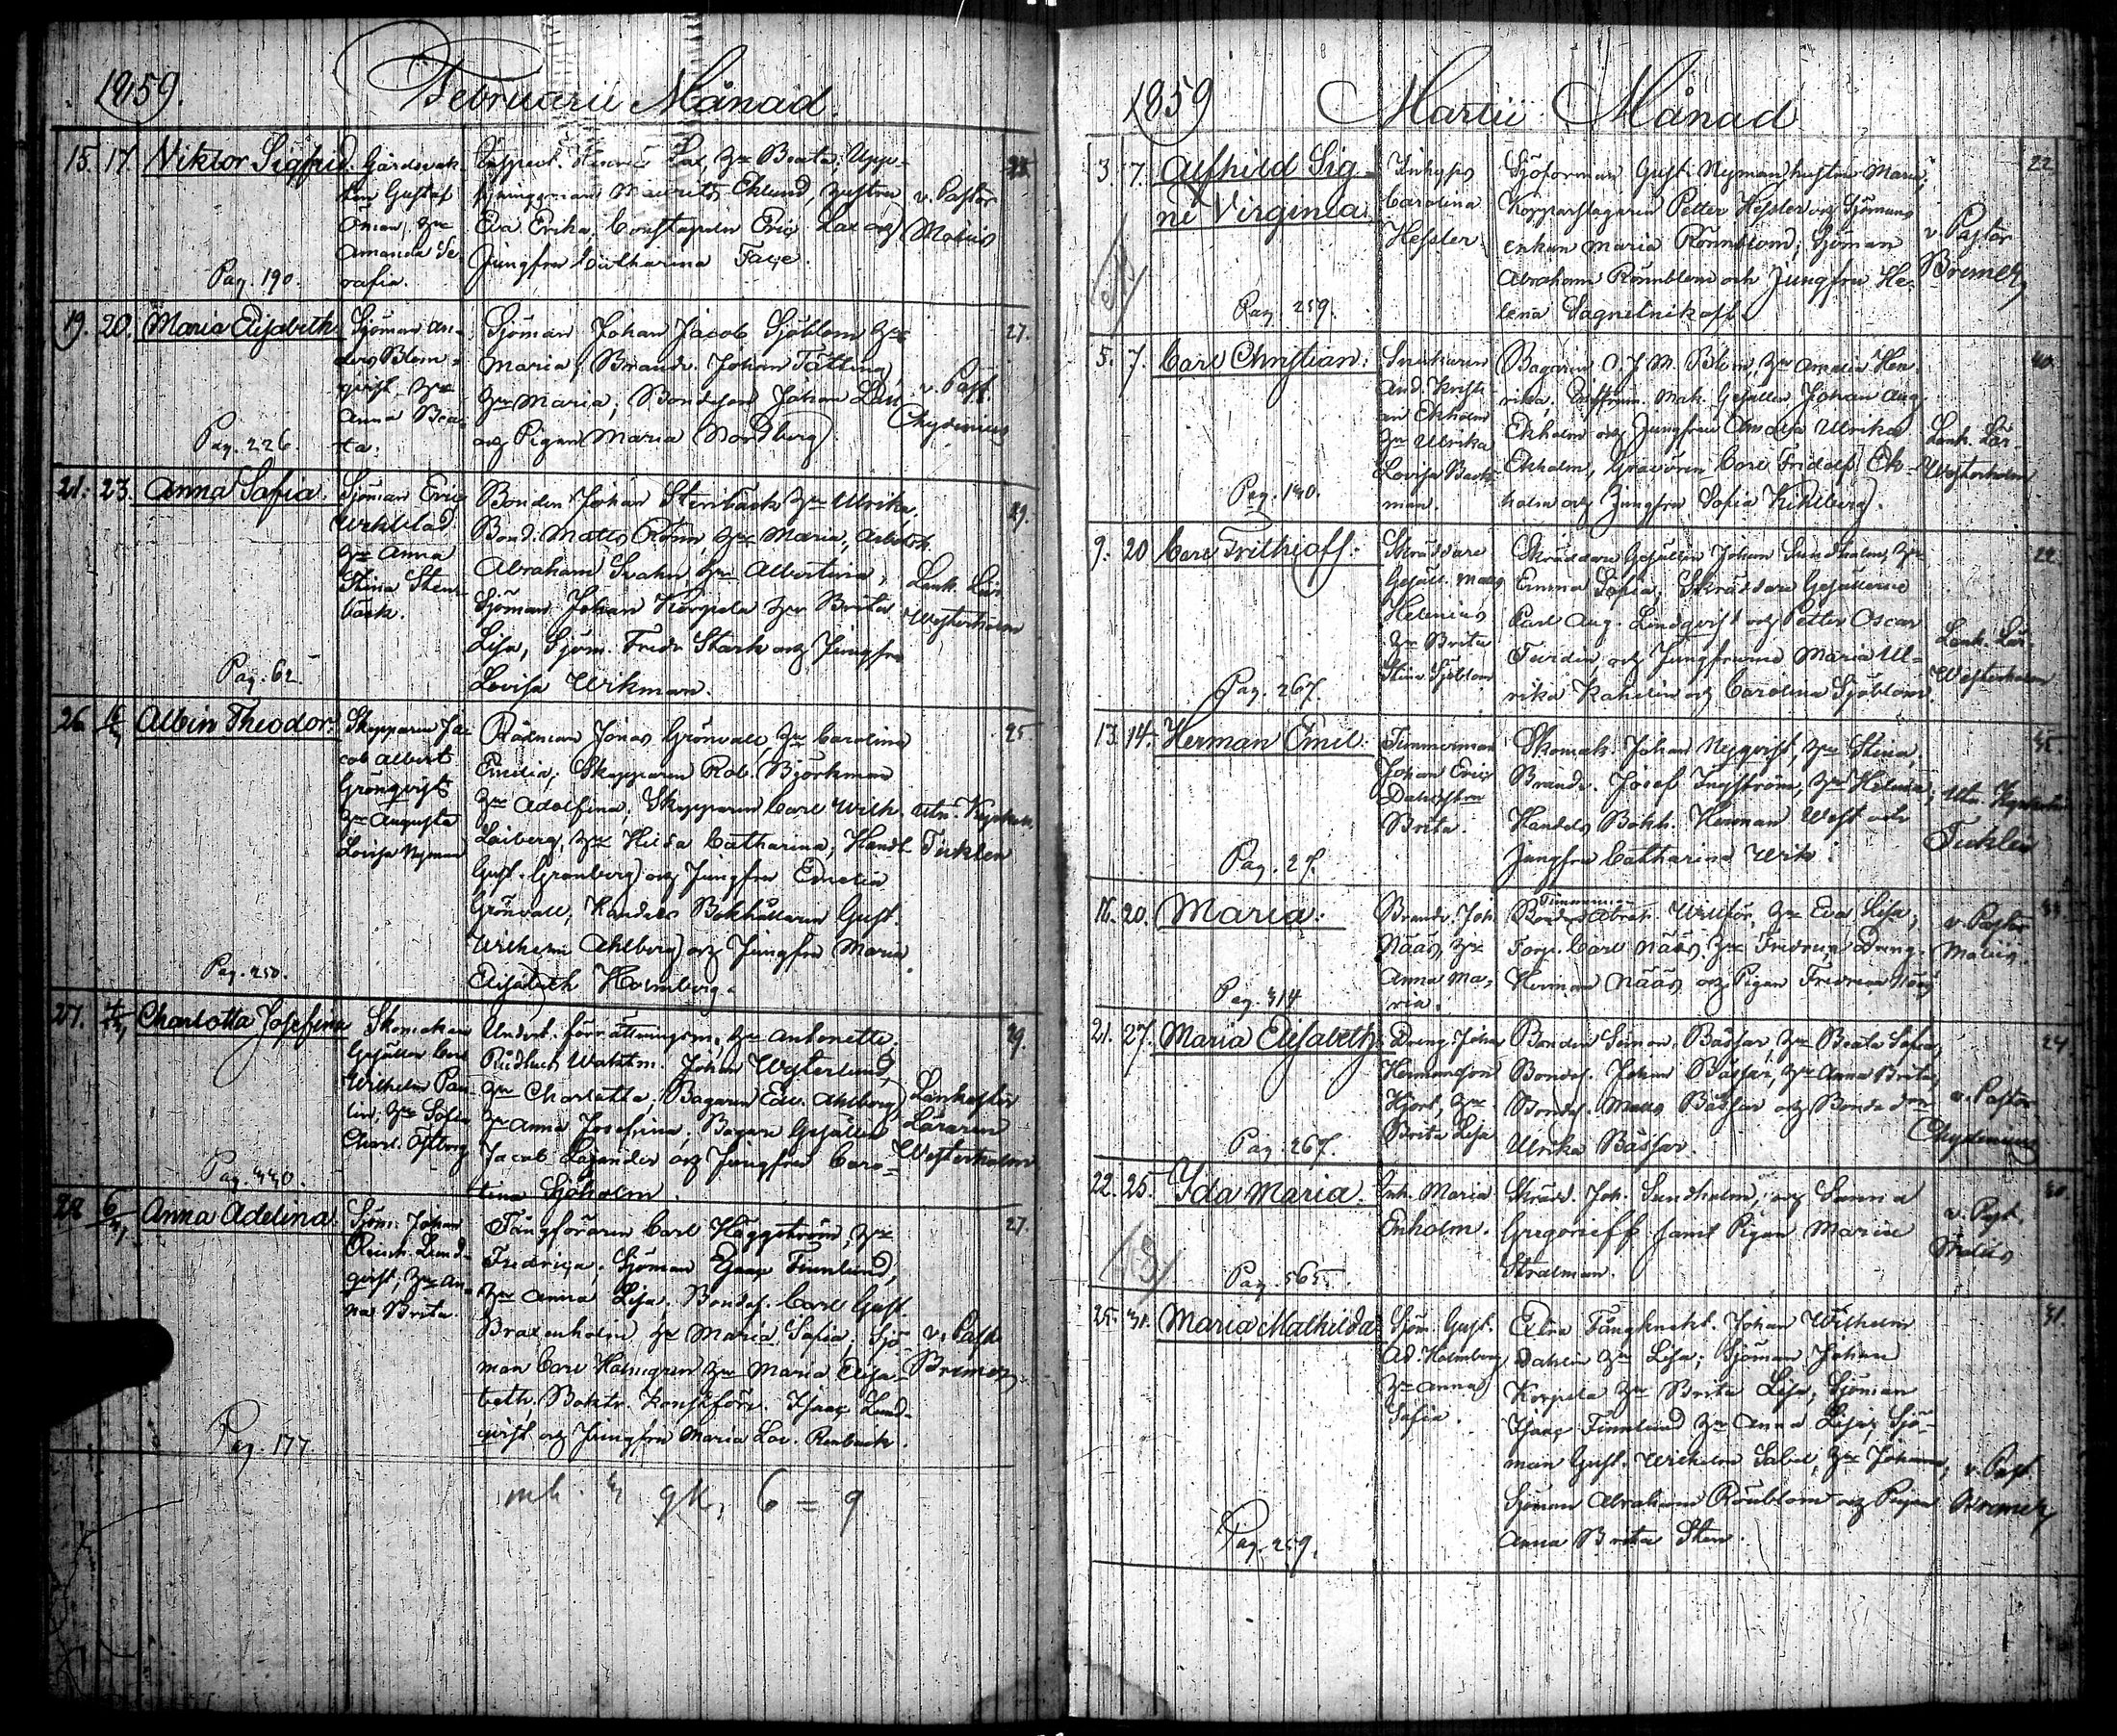 1859.
Februarii Månad.
15. 17. Viktor Sigfrid.
Gårdsvak-
ten Gustaf
Öman, h:u
Amanda Se-
rafia.
Pag. 190.
Lax, h:u Beata, Upp-
Maurits Eklund, hustru
Eva Erika, Constapeln Eric Lax och
Jungfru Catharina
v. Pastor
Malin
19. 20. Maria Elisabeth
Sjöman An-
ders Blom-
qvist, h:u
Anna Bea-
ta.
Pag. 226.
Sjöman Johan Jacob Sjöblom h:u
Maria, Brandv. Johan Tätting
h:u Maria, Bondeson Johan
och Pigan Maria Nordberg.
v. Past.
Chydenius
27.
21. 23. Anna Safia.
Sjöman Eric
h:u Anna
Stina Sten-
bäck.
Pag. 62.
Bonden Johan Stenbäck h:u Ulrika,
Bond. Matts Rönn, h:u Maria, Arbetsk.
Abraham Svahn h:u Albertina,
Sjöman Johan Korpela h:u Brita
Lisa, Sjöm. Fredr Stark och Jungfru
Lovisa Wikman.
Lank. Lär.
Westerholm
29.
26. Albin Theodor.
Skepparen Ja-
cob Albert
Grönqvist
h:u Augusta
Lovisa Nyman
Pag. 250.
Rådman Jonas Grönvall h:u Carolina
Emilia, Skepparen Rob. Björkman
h:u Adolfina, Skepparen Carl Wilh.
h:u Hilda Catharina, Handl.
Gust. Grönberg och Jungfru Emelia
Grönvall, Handels Bokhållaren Gust.
Wilhelm Ahlberg och Jungfru Maria
Elisabeth Holmberg.
Ticklen
25
27. Charlotta Josefina
Skomakare
Gesällen Carl
Wilhelm Pau-
lin, h:u Sofia
Charl. Östberg
h:u Antonette.
Rådhus Waktm. Johan Westerlund,
h:u Charlotta, Bagaren Edv. Ahlberg
h:u Anna Josefina, Bagare Gesällen
Jacob Lagander och Jungfru Caro-
lina Sjöholm.
Lankaster
Läraren
Westerholm
29.
28 6 Anna Adelina.
Sjöm. Johan
Lund-
qvist, h:u An-
na Brita.
Pag. 177
Fångföraren Carl Häggström, h:u
Fredrica, Sjöman Isaac Finnlund,
h:u Anna Lisa. Bondes. Carl Gust.
Braxenholm h:u Maria Safia, Sjö-
man Carl Holmgren h:u Maria Elisa-
beth, Isaac Lund-
qvist och Jungfru Maria Lov. Renback.
v. Past.
Bremer
27.
mk. 3 qk. 6 = 9
1859
Martii Månad
3. 7. Alfhild Sig-
ne Virginia
Inhyses
Carolina
Hessler
Pag. 259.
Sjöforman Gust. Nyman hustru Maria,
Kopparslagaren Petter Hessler och Sjömans
enkan Maria Rönnblom, Sjöman
Abraham Rönnblom och Jungfru He-
lena
v. Pastor
Bremer
22
5. 7. Carl Christian.
Snickaren
And. Kristi-
an Ekholm
h:u Ulrika
Lovisa Back-
man.
Pag. 140.
Bagaren C. J. M. Blom, h:u Amalia Hen-
rika, Mak. Gesällen Johan Aug.
Ekholm och Jungfru Amalia Ulrika
Ekholm, Gravören Carl Fridolf Ek-
holm och Jungfru Sofia Kihlberg.
Lank. Lär.
Westerholm
40.
9. 20 Carl Frithioff.
Skräddare
Gesäll. Matts
Helenius
h:u Brita
Stina Sjöblom
Pag. 267.
Skräddare Gesällen Johan Sundholm, h:u
Emma Sofia, Skräddare Gesällerne
Karl Aug. Lindqvist och Petter Oscar
och Jungfrurne Maria Ul-
rika Kahelin och Carolina Sjöblom
Lank. Lär.
Westerholm
22.
13. 14. Herman Emil.
Timmerman
Johan Eric
Dahlström
Brita.
Pag. 27.
Skomak. Johan Nyqvist, h:u Stina,
Brandv. Josef Ingström, h:u Helena,
Handels Bokh. Herman West och
Jungfru Catharina Wik.
Ticklen
16. 20. Maria.
Brandv. Joh.
Nääs, h:u
Anna Ma-
ria.
Pag. 314
Timmerm.
Abrah. Willför, h:u Eva Lisa,
Torp. Carl Nääs, h:u Fredrica, Dreng.
Herman Nääs och Pigan Fredrica Nääs
v. Pastor
Malin.
21. 27. Maria Elisabeth
Dreng. Johan
Hermansson
Hjort, h:u
Brita Lisa
Pag. 267.
Bonden Simon Bässar, h:u Beata Sofia,
Bondes. Johan Bässar, h:u Anna Brita,
Bondes. Matts Bässar och Bonde d:r
Ulrika Bässar.
v. Pastor
Chydenius
24
22. 25. Ida Maria.
Inh. Maria
Enholm.
Pag. 565.
Skrädd. Joh. Sundholm, och Sanna
Gregorieff samt Pigan Maria
Strälman.
v. Past.
Malin
25. 31. Maria Mathilda
Sjöm. Gust.
Ad. Holmberg
h:u Anna
Safia.
Pag. 259.
Extra Fångknekt. Johan Wilhelm
Dahlin h:u Lisa, Sjöman Johan
Korpela h:u Brita Lisa, Sjöman
Isaac Finnlund h:u Anna Lisa, Sjö-
man Gust. Wilhelm Sabel, h:u Johanna,
Sjöman Abraham Rönblom och Pigan
Anna Brita Sten.
v. Past.
Bremer
31.